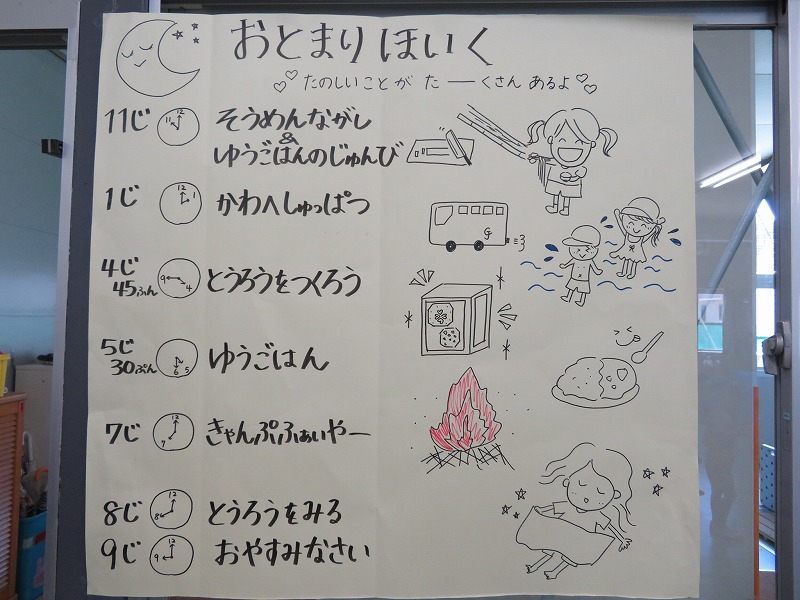 おとまりほいく
たのしいことが たーくさん あるよ
11じ
12
11
そうめんながし
&
ゆうごはんのじゅんび
1じ
12
1
かわへしゅっぱつ
G
4じ
45ふん
9
4
とうろうをつくろう
5じ
30ぷん
6 5
ゆうごはん
7じ
12
7
きゃんぷふぁいやー
8じ
12
8
とうろうをみる
9じ
12
9
おやすみなさい